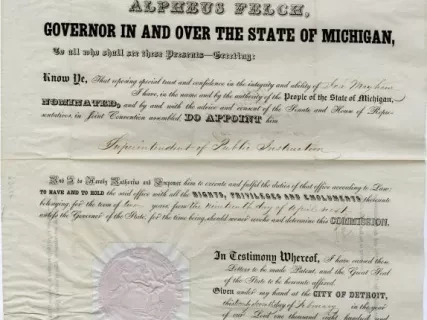 ALPHEUS FELCH,
GOVERNOR IN AND OVER THE STATE OF MICHIGAN,
To all who shall see these Presents—Greeting:
Know Ye, That reposing special trust and confidence in the integrity and ability of Ira Mayhew
I have, in the name and by the authority of the People of the State of Michigan,
NOMINATED, and by and with the advice and consent of the Senate and House of Repre-
sentatives, in Joint Convention assembled, DO APPOINT him
Superintendent of Public Instruction
And I do Hereby Authorise and Empower him to execute and fulfil the duties of that office according to Law:
TO HAVE AND TO HOLD the said office with all the RIGHTS, PRIVILEGES AND EMOLUMENTS thereunto
belonging, for the term of two years from the nineteenth day of April next
unless the Governor of the State, for the time being, should sooner revoke and determine this COMMISSION.
In Testimony Whereof, I have caused these
Letters to be made Patent, and the Great Seal
of the State to be hereunto affixed.
Given under my hand at the CITY OF DETROIT,
this day of in the year
of our Lord one thousand eight hundred and